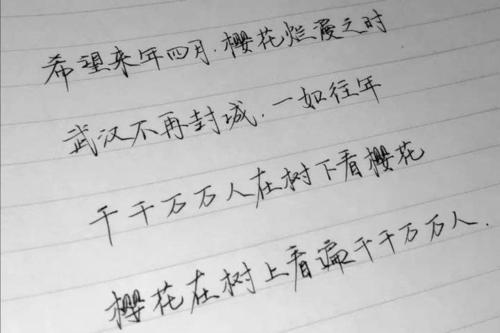 希望来年四月.樱花烂漫之时
武汉不再封城.一如往年
千千万万人在树下看樱花
樱花在树上看遍千千万万人.